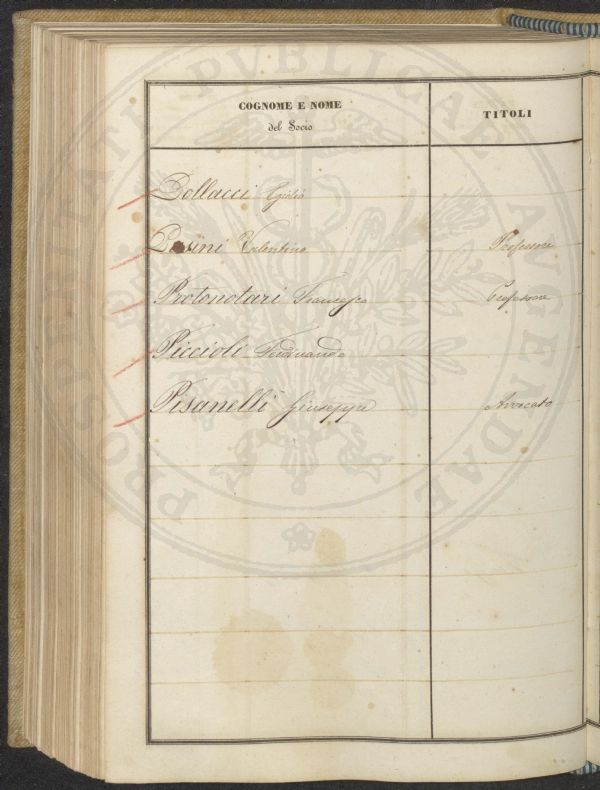 PROSPERITATI PUBLICAE AUGENDAE
COGNOME E NOME
del Socio
TITOLI
Pollacci Egidio
Pasini Valentino
Professore
Protonotari Francesco
Professore
Piccioli Ferdinando
Pisanelli Giuseppe
Avvocato